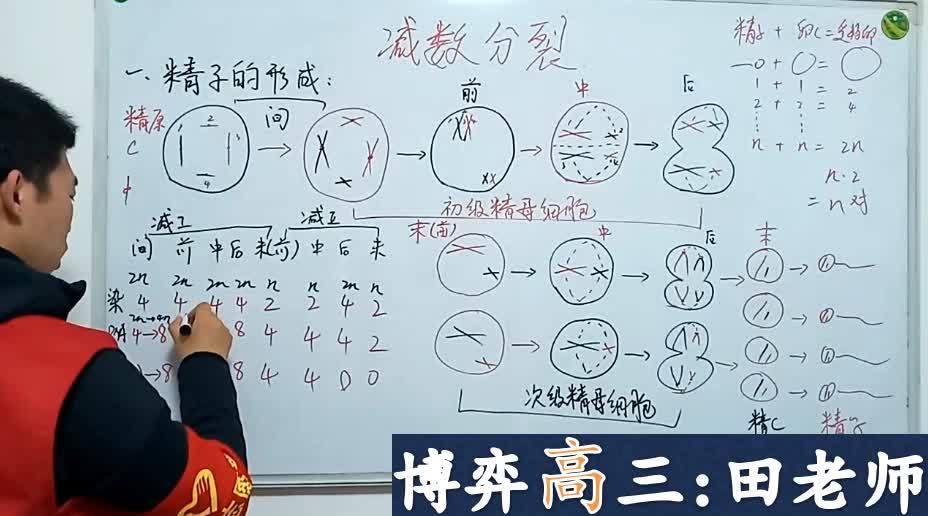 减数分裂
一、精子的形成:
精子 + 卵C=受精卵
1 + 1 = 2
2 + 2 = 4
n + n = 2n
n·2
= n对
精原
C
间
前
中
后
2
1
3
4
初级精母细胞
减I
减II
间 前 中 后 末(前) 中 后 末
2n 2n 2n 2n n n 2n n
染 4 4 4 4 2 2 4 2
2n→4n
DNA 4→8 8 4 4 4 2
→8 8 4 4 0 0
末(前)
中
后
末
次级精母细胞
精C
精子
博弈高三:田老师